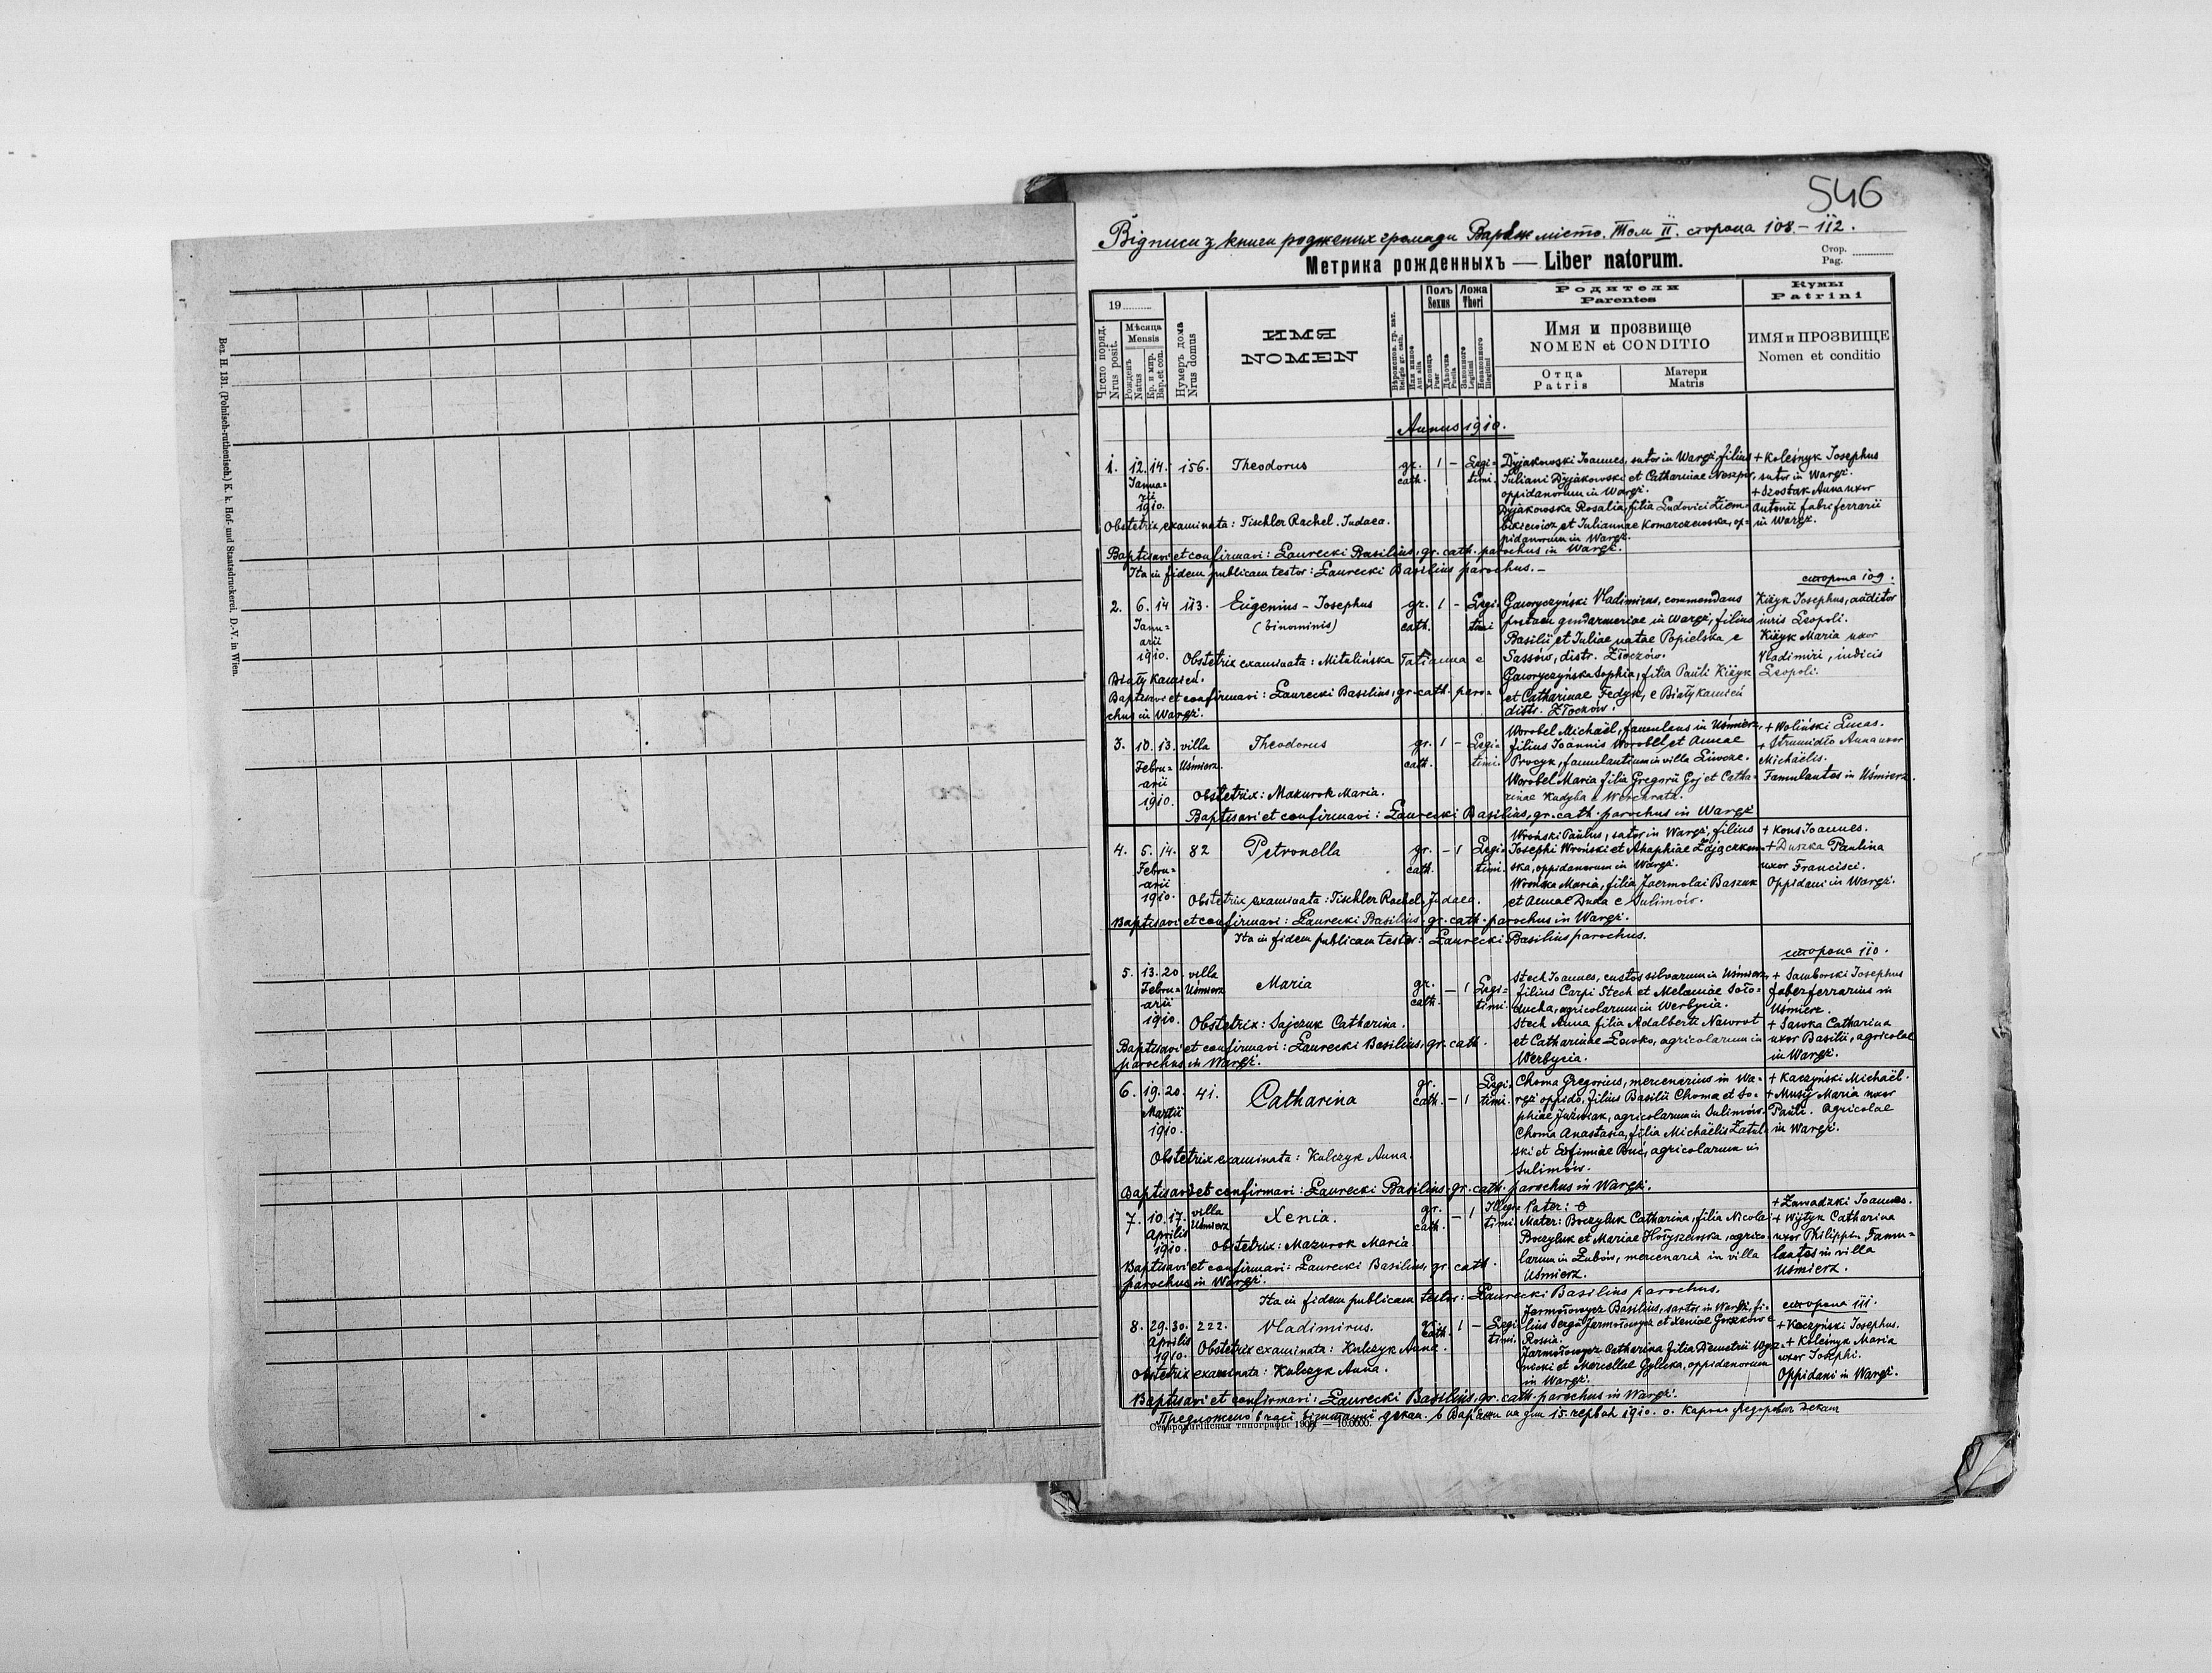 Bez. H. 131. (Polnisch-ruthenisch.) K. k. Hof- und Staatsdruckerei. D.-V. in Wien.
546
Відписи з книги роджених громади Варяж місто. Том II. сторона 108.–112.
Метрика рожденныхъ — Liber natorum.
Стор.
Pag.
19
Число поряд.
Nrus posit.
Мѣсяца
Mensis
Рожденъ
Natus
Кр. и мѵр.
Bap. et con.
Нумеръ дома
Nrus domus
ИМЯ
NOMEN
Полъ
Sexus
Хлопець
Puer
Дѣвочка
Puella
Ложа
Thori
Законного
Legitimi
Незаконного
Illegitimi
Родители
Parentes
Имя и прозвище
NOMEN et CONDITIO
Отца
Patris
Матери
Matris
Кумы
Patrini
ИМЯ и ПРОЗВИЩЕ
Nomen et conditio
Annus 1910.
1. 12. 14. 156. Theodorus gr. 1 – Legi-
Janua- cath. timi.
rii
1910.
Dyjakowski Joannes, sutor in Waręż, filius
Juliani Dyjakowski et Catharinae Neszpir,
oppidanorum in Waręż.
Dyjakowska Rosalia, filia Ludovici Ziem-
bikiewicz et Juliannae Komarczewska, op-
pidanorum in Waręż.
+ Koleśnyk Josephus
sutor in Waręż.
+ Szostak Anna uxor
Antonii fabri ferrarii
in Waręż.
Obstetrix examinata: Tischler Rachel. Judaea.
Baptisavi et confirmavi: Ławrecki Basilius, gr. cath. parochus in Waręż.
Ita in fidem publicam testor: Ławrecki Basilius parochus. –
сторона 109.
2. 6. 14 113. Eugenius – Josephus gr. 1 – Legi-
Janu- (binominis) cath. timi
arii
1910.
Gaworyczyński Vladimirus, commendans
postam gendarmeriae in Waręż, filius
Basilii et Juliae natae Popielska, e
Sassów, distr. Złoczów.
Gaworyczyńska Sophia, filia Pauli Kiżyk
et Catharinae Fedyk, e Biały kamień
distr. Złoczów.
Kiżyk Josephus, auditor
iuris Leopoli.
Kiżyk Maria uxor
Vladimiri, iudicis
Leopoli.
Obstetrix examinata: Mitulińska Tatianna e
Biały kamień.
Baptisavi et confirmavi: Ławrecki Basilius, gr. cath. paro-
chus in Waręż.
3. 10. 13. villa Theodorus gr. 1 – Legi-
Febru- Uśmierz. cath. timi.
arii
1910.
Worobel Michaël, famulans in Uśmierz,
filius Joannis Worobel et Annae
Procyk, famulantium in villa Liwcze.
Worobel Maria filia Gregorii Goj et Catha-
rinae Kudyba e Werchrata.
+ Woliński Lucas.
+ Strumidło Anna uxor
Michaëlis.
Famulantes in Uśmierz.
Obstetrix: Mazurok Maria.
Baptisavi et confirmavi: Ławrecki Basilius, gr. cath. parochus in Waręż
4. 5. 14. 82 Petronella gr. – 1 Legi-
Febru- cath. timi.
arii
1910.
Wroński Paulus, sutor in Waręż, filius
Josephi Wroński et Ahaphiae Zajączkow-
ska, oppidanorum in Waręż.
Wrońska Maria, filia Jaermolai Baszuk
et Annae Duda e Sulimów.
+ Kons Joannes.
+ Duszka Paulina
uxor Francisci.
Oppidani in Waręż.
Obstetrix examinata: Tischler Rachel. Judaea.
Baptisavi et confirmavi: Ławrecki Basilius, gr. cath. parochus in Waręż.
Ita in fidem publicam testor: Ławrecki Basilius parochus.
сторона 110.
5. 13. 20. villa Maria gr. – 1 Legi-
Febru- Uśmierz cath. timi.
arii
1910.
Stech Joannes, custos silvarum in Uśmierz,
filius Carpi Stech et Melaniae Soło-
ducha, agricolarum in Werbycia.
Stech Anna filia Adalberti Nawrot
et Catharinae Ławko, agricolarum in
Werbycia.
+ Samborski Josephus
faber ferrarius in
Uśmierz.
+ Sawka Catharina
uxor Basilii, agricolae
in Waręż.
Obstetrix: Sajczuk Catharina.
Baptisavi et confirmavi: Ławrecki Basilius, gr. cath.
parochus in Waręż.
6. 19. 20. 41. Catharina gr. – 1 Legi-
Martii cath. timi.
1910.
Choma Gregorius, mercenarius in Wa-
ręż oppido, filius Basilii Choma et So-
phiae Juźwiak, agricolarum in Sulimów.
Choma Anastasia, filia Michaëlis Zatul-
ski et Eufimiae Buć, agricolarum in
Sulimów.
+ Kaczyński Michaël.
+ Musij Maria uxor
Pauli. Agricolae
in Waręż.
Obstetrix examinata: Kulczyk Anna.
Baptisavi et confirmavi: Ławrecki Basilius, gr. cath. parochus in Waręż.
7. 10. 17. villa Xenia. gr. – 1 Illegi-
Aprilis Uśmierz cath. timi
1910.
Pater: O
Mater: Boczyluk Catharina, filia Nicolai
Boczyluk et Mariae Hołyszewska, agrico-
larum in Łubów, mercenaria in villa
Uśmierz.
+ Zawadzki Joannes.
+ Wijtyk Catharina
uxor Philippi. Famu-
lantes in villa
Uśmierz.
Obstetrix: Mazurok Maria
Baptisavi et confirmavi: Ławrecki Basilius, gr. cath.
parochus in Waręż.
Ita in fidem publicam testor: Ławrecki Basilius parochus.
сторона 111.
8. 29. 30. 222. Vladimirus. gr. 1 – Legi-
Aprilis cath. timi.
1910.
Jarmołowycz Basilius, sartor in Waręż, fi-
lius Sergii Jarmołowycz et Xeniae Gorszków e
Rossia.
Jarmołowycz Catharina filia Demetrii
et Marcellae oppidanorum
in Waręż.
+ Kaczyński Josephus.
+ Koleśnyk Maria
uxor Josephi.
Oppidani in Waręż.
Obstetrix examinata: Kulczyk Anna.
Obstetrix examinata: Kulczyk Anna.
Baptisavi et confirmavi: Ławrecki Basilius, gr. cath. parochus in Waręż.
Предложено в часі візитації декан. в Варяжи на дни 15. червня 1910. о. Кароль Федорович декан
Ставропигійская типографія — 10.0000.